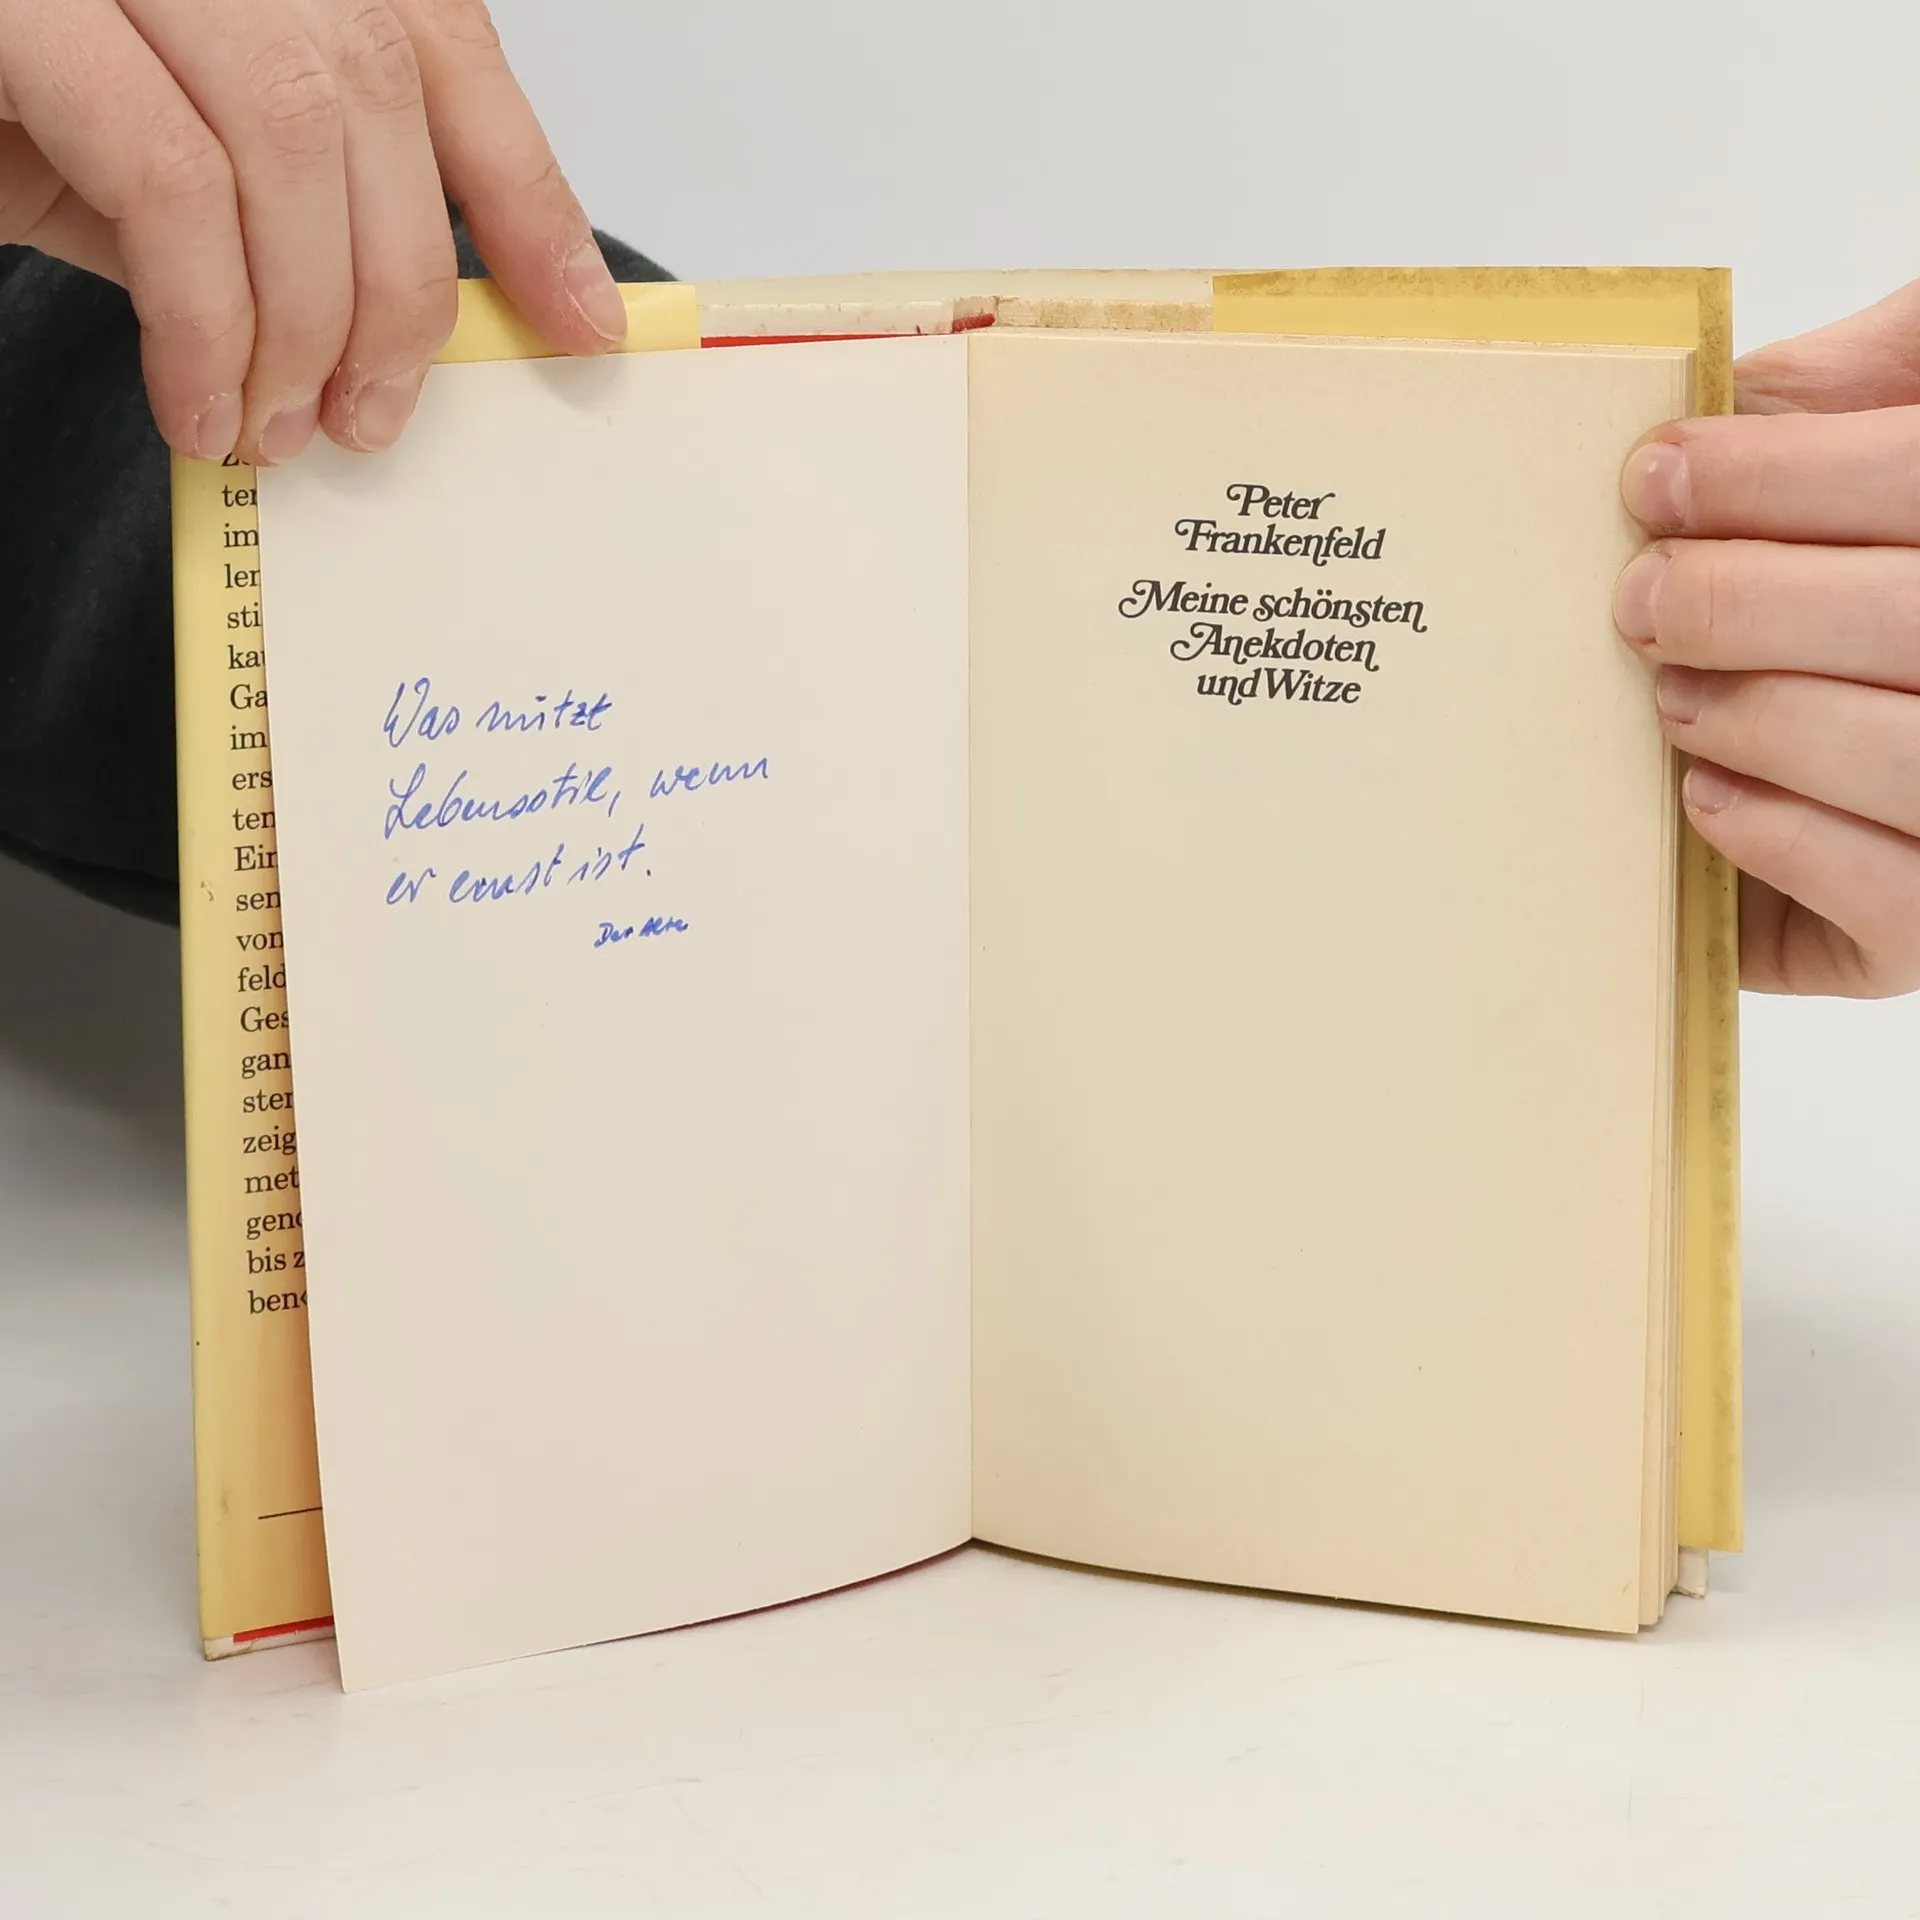 ter
im
ler
sti
kau
Ga
im
ers
ten
Ein
sen
von
feld
Ges
gan
ster
zeig
met
geno
bis z
ben‹
Was nützt
Lebensstil, wenn
er ernst ist.
Der Alte
Peter
Frankenfeld
Meine schönsten
Anekdoten
und Witze